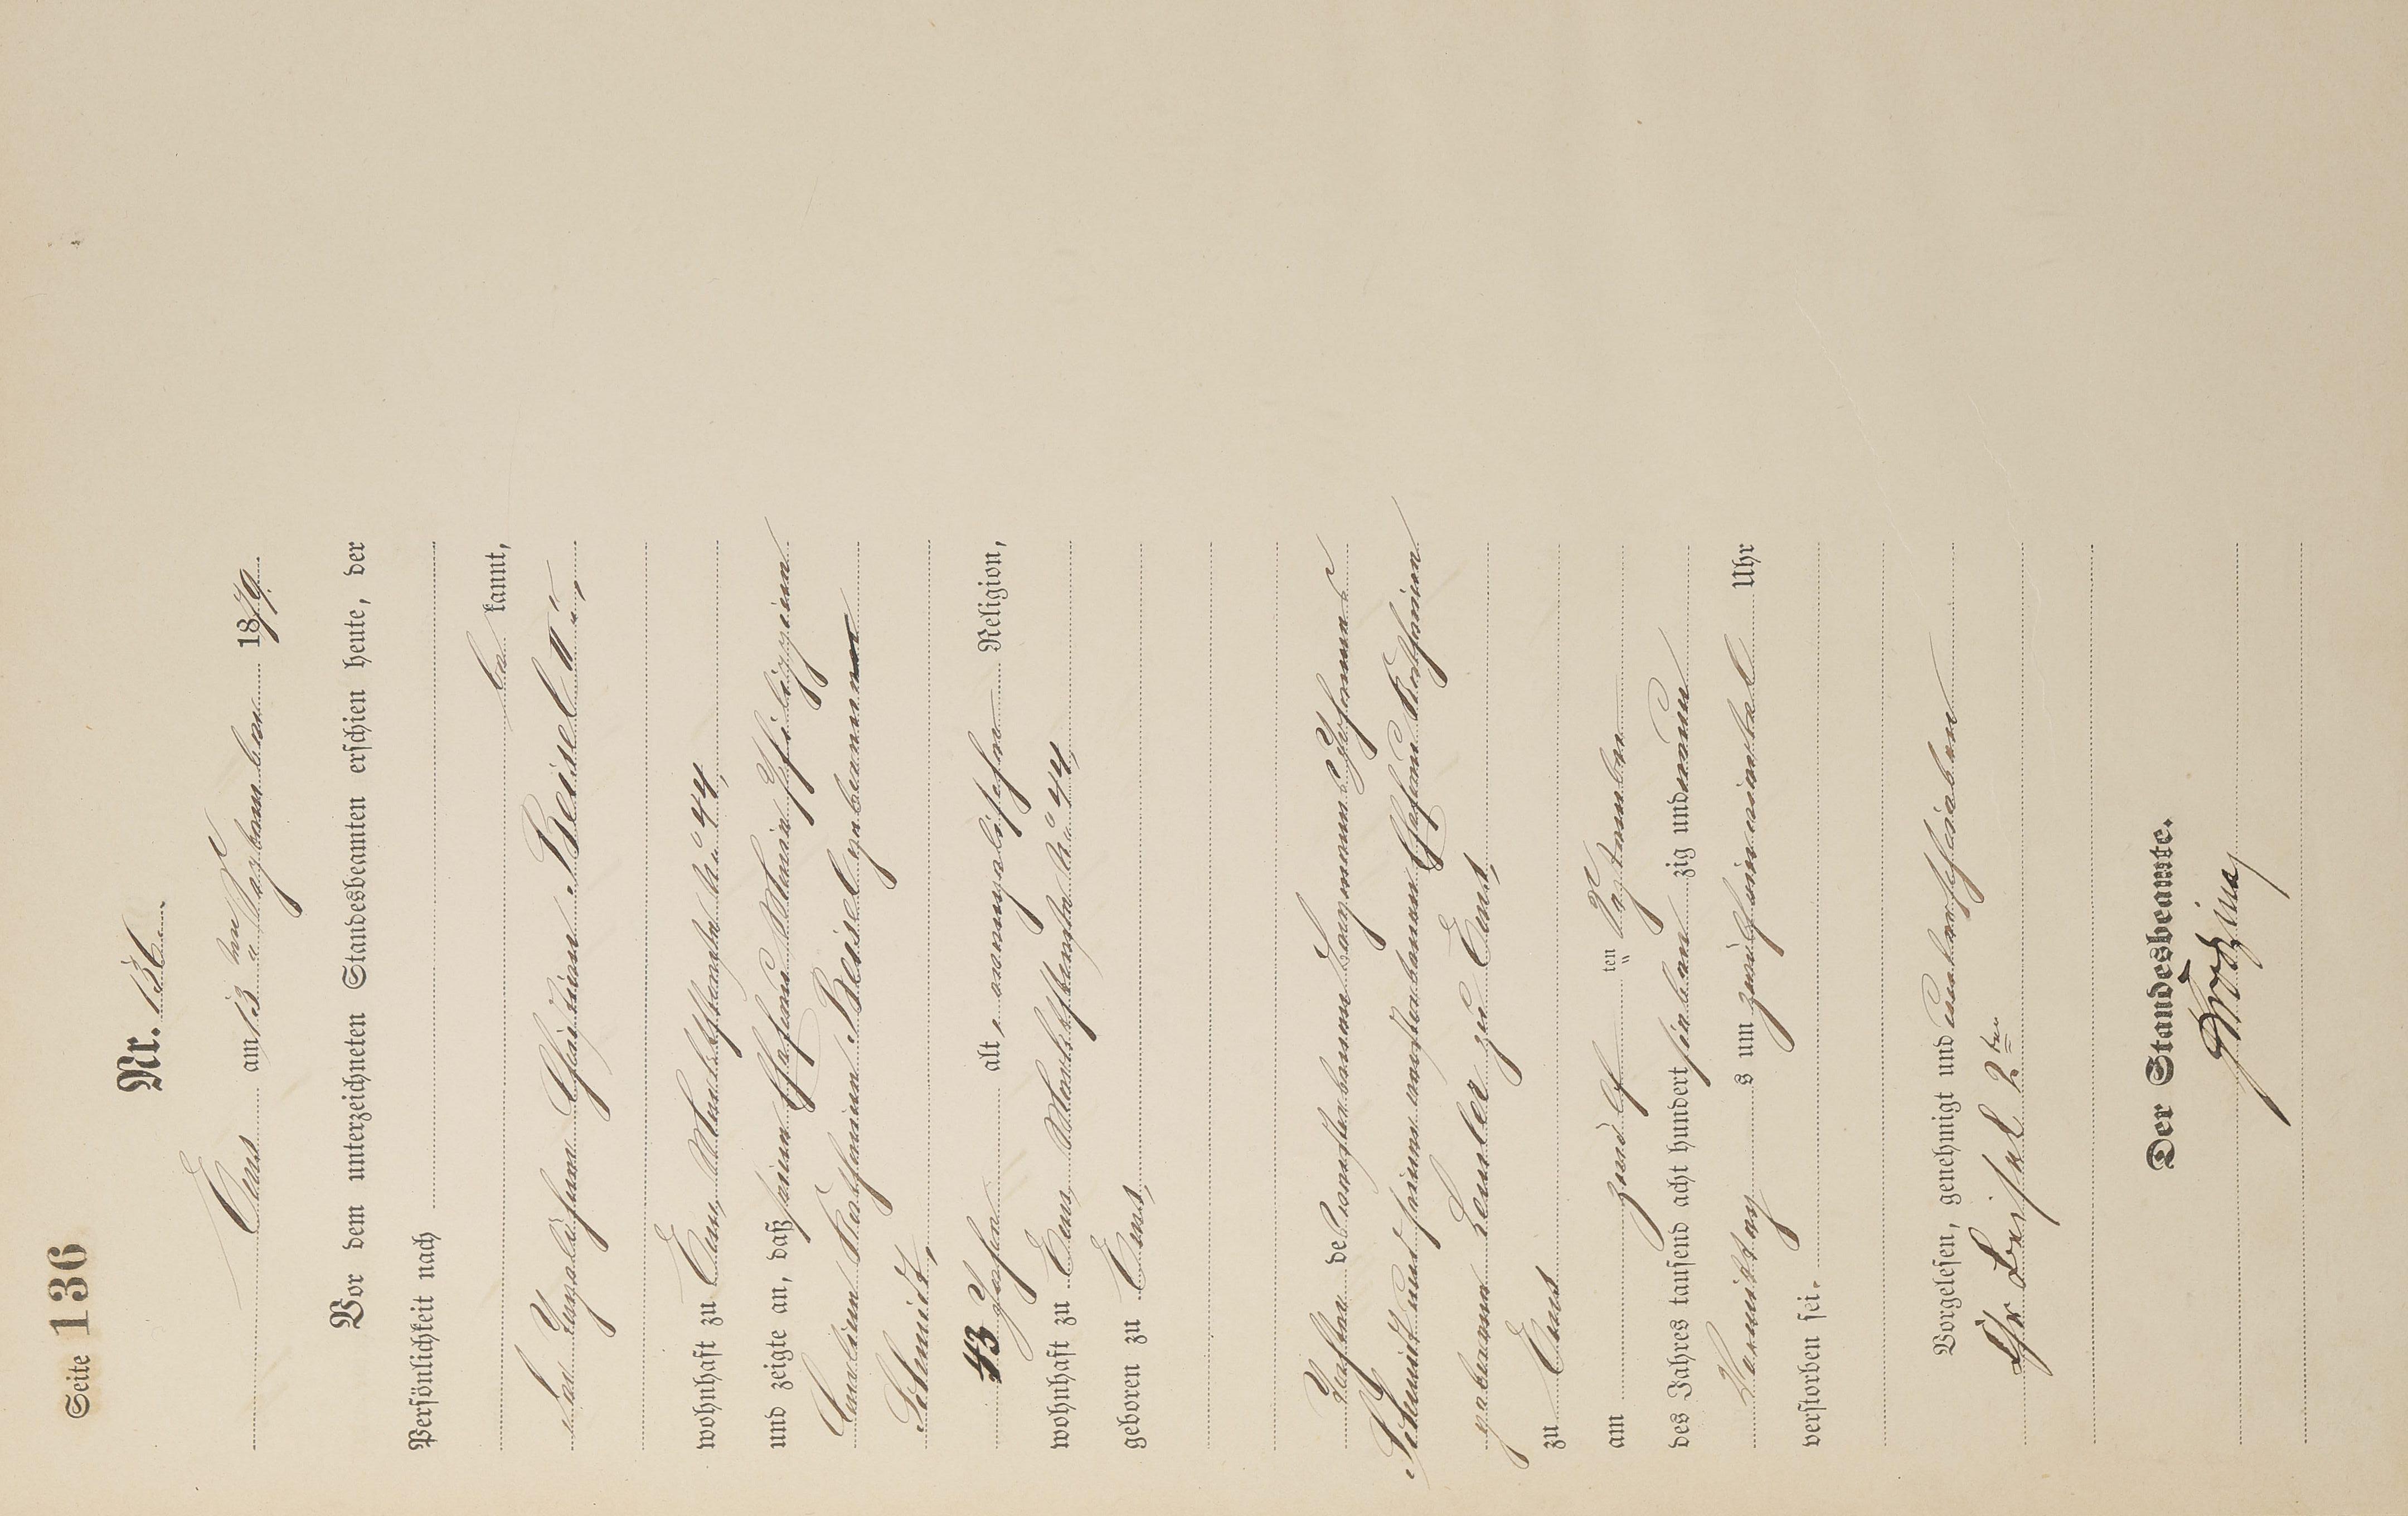 Seite 136
Nr. 136.
Ems am 13 ten September 1879.
Vor dem unterzeichneten Standesbeamten erschien heute, der
Persönlichkeit nach
be kannt,
der Christian Beisel II
wohnhaft zu Ems, No 44,
und zeigte an, daß seine Ehefrau Maria Philippine
Karoline Katharine Beisel geborenen
Schmidt,
43 Jahre alt, evangelischer Religion,
wohnhaft zu Ems No 44,
geboren zu Ems,
Tochter des verstorbenen Johann
Schmidt und seiner verstorbenen Ehefrau Katharine
geborene zu Ems,
zu Ems
am zwölf ten September
des Jahres tausend acht hundert sieben zig und neun
Vormittag s um Uhr
verstorben sei.
Vorgelesen, genehmigt und unterschrieben
Chr Beisel 2ter
Der Standesbeamte.